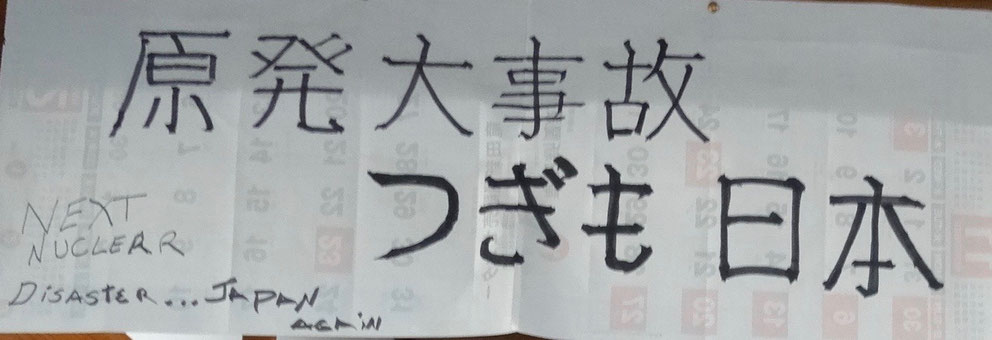 原発大事故
つぎも日本
NEXT
NUCLERR
DISASTER...JAPAN
AGAIN